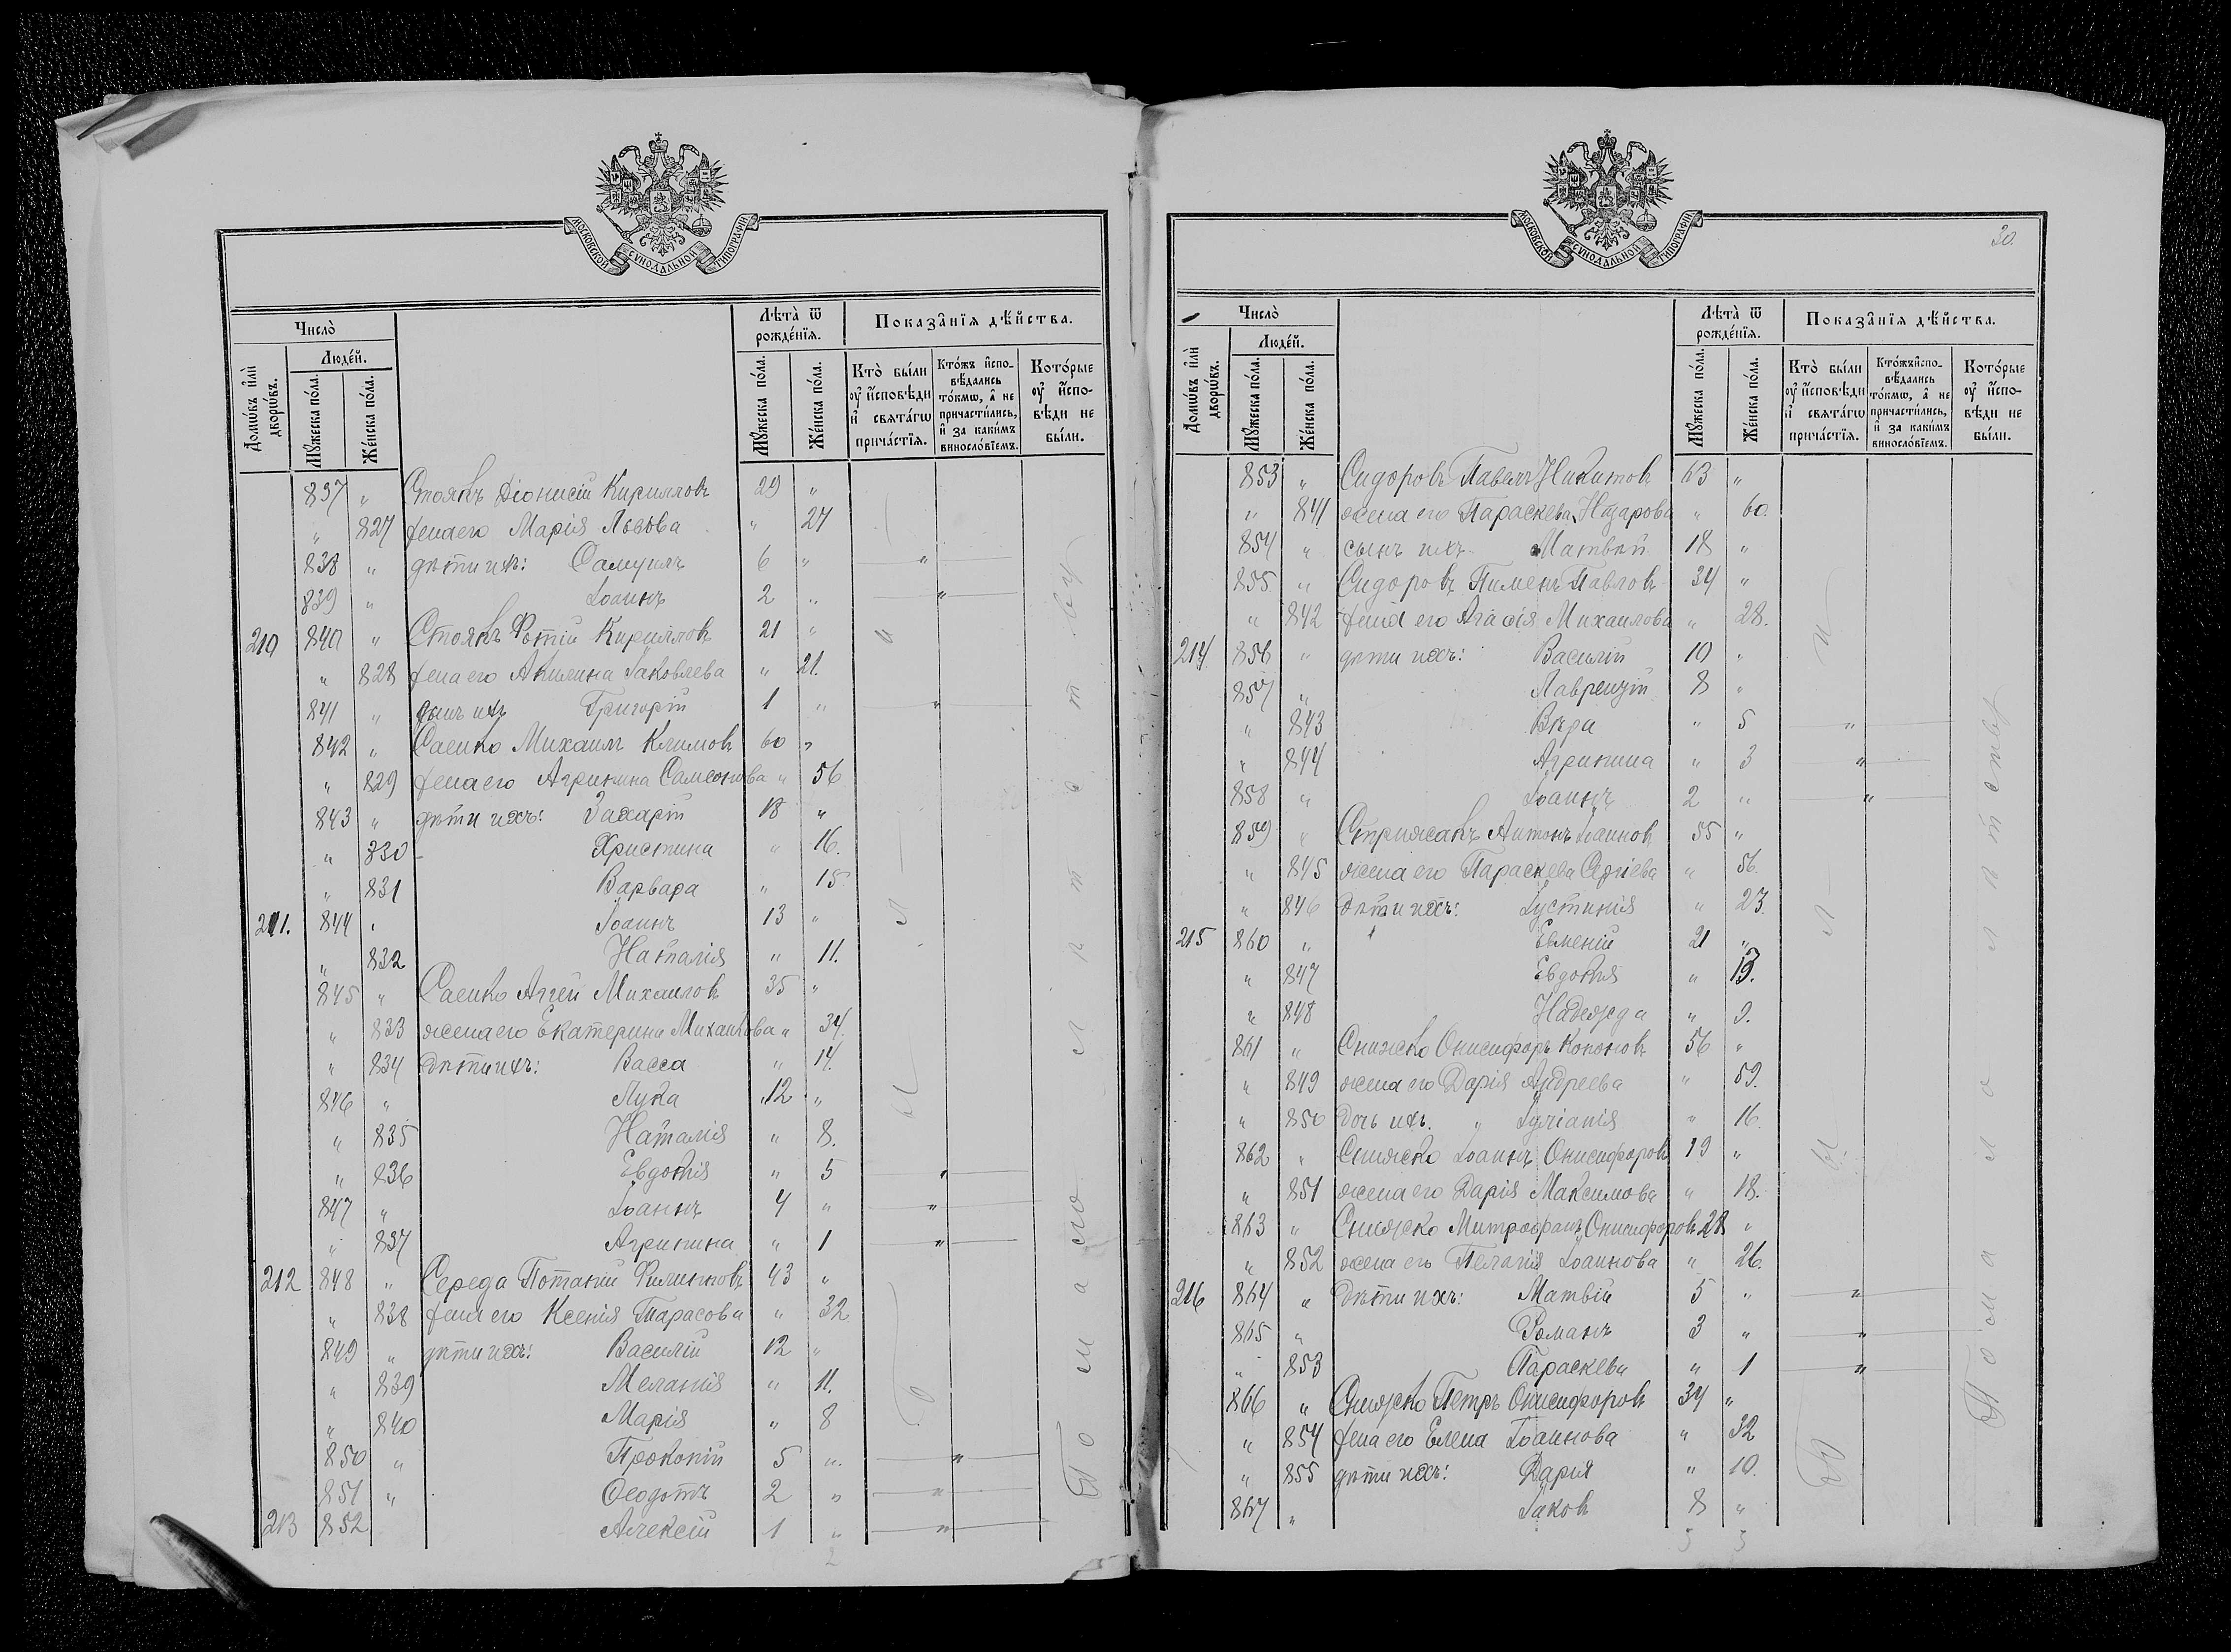 МОСКОВСКОЙ СѴНОДАЛЬНОЙ ТИПОГРАФІИ
Число̀
Домѡ́въ и҆лѝ дворѡ́въ.
Люде́й.
Мꙋ́жеска по́ла.
Же́нска по́ла.
Лѣта̀ ѿ рожде́нїѧ.
Мꙋ́жеска по́ла.
Же́нска по́ла.
Показа̑нїѧ дѣ́йства.
Кто̀ бы́ли оу҆ и҆́сповѣди и҆ свѧта́гѡ прича́стїѧ.
Кто́жъ и҆сповѣ́дались то́кмѡ, а҆ не причасти́лись, и҆ за каки́мъ винослові́емъ.
Кото́рые оу҆ и҆́сповѣди не бы́ли.
837 " Стоякъ Діонисій Кирилловъ 29 "
" 827 жена его Марія Львова " 27
838 " дѣти ихъ: Самуилъ 6 "
839 " Іоаннъ 2 "
210 840 " Стоякъ Фотій Кирилловъ 21 "
" 828 жена его Акилина Іаковлева " 21.
841 " сынъ ихъ Григорій 1 "
842 " Саенко Михаилъ Климовъ 60 "
" 829 жена его Агрипина Самсонова " 56
843 " дѣти ихъ: Захарій 18 "
" 830 Христина " 16.
" 831 Варвара " 15
211. 844 " Іоаннъ 13 "
" 832 Наталія " 11.
845 " Саенко Аггей Михаиловъ 35 "
" 833 жена его Екатерина Михаилова " 34.
" 834 дѣти ихъ: Васса " 14.
846 " Лука 12 "
" 835 Наталія " 8.
" 836 Евдокія " 5
847 " Іоаннъ 4 "
" 837 Агрипина " 1
212 848 " Середа Потапій Филипповъ 43 "
" 838 жена его Ксенія Тарасова " 32
849 " дѣти ихъ: Василій 12 "
" 839 Меланія " 11.
" 840 Марія " 8
850 " Прокопій 5 "
851 " Ѳеодотъ 2 "
213 852 Алексій 1 "
2
Были
По малолѣтству
МОСКОВСКОЙ СѴНОДАЛЬНОЙ ТИПОГРАФІИ
30.
Число̀
Домѡ́въ и҆лѝ дворѡ́въ.
Люде́й.
Мꙋ́жеска по́ла.
Же́нска по́ла.
Лѣта̀ ѿ рожде́нїѧ.
Мꙋ́жеска по́ла.
Же́нска по́ла.
Показа̑нїѧ дѣ́йства.
Кто̀ бы́ли оу҆ и҆́сповѣди и҆ свѧта́гѡ прича́стїѧ.
Кто́жъ и҆сповѣ́дались то́кмѡ, а҆ не причасти́лись, и҆ за каки́мъ винослові́емъ.
Кото́рые оу҆ и҆́сповѣди не бы́ли.
853 " Сидоровъ Павелъ Никитовъ 63 "
" 841 жена его Параскева Назарова " 60.
854 " сынъ ихъ Матвѣй 18 "
855 " Сидоровъ Пименъ Павловъ 34 "
" 842 жена его Агафія Михаилова " 28.
214 856 " дѣти ихъ: Василій 10 "
857 " Лаврентій 8 "
" 843 Вѣра " 5
" 844 Агрипина " 3
858 " Іоаннъ 2 "
859 " Стрижакъ Антонъ Іоанновъ 55 "
" 845 жена его Параскева Сергіева " 56.
" 846 дѣти ихъ: Іустинія " 23.
215 860 " Евменій 21 "
" 847 Евдокія " 13.
" 848 Надежда " 9.
861 " Снижко Онисифоръ Кононовъ 56 "
" 849 жена его Дарія Андреева " 59.
" 850 дочь ихъ. " Іуліанія " 16.
862 " Снижко Іоаннъ Онисифоровъ 19 "
" 851 жена его Дарія Максимова " 18.
863 " Снижко Митрофанъ Онисифоровъ 28 "
" 852 жена его Пелагія Іоаннова " 26.
216 864 " дѣти ихъ: Матвій 5 "
865 " Романъ 3 "
" 853 Параскева " 1
866 " Снижко Петръ Онисифоровъ 34 "
" 854 жена его Елена Іоаннова " 32
" 855 дѣти ихъ: Дарія " 10.
867 " Іаковъ 8 "
3 3
Были
По малолѣтству